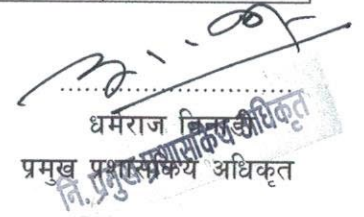 धर्मराज
प्रमुख प्रशासकिय अधिकृत
नि. प्रमुख प्रशासकिय अधिकृत